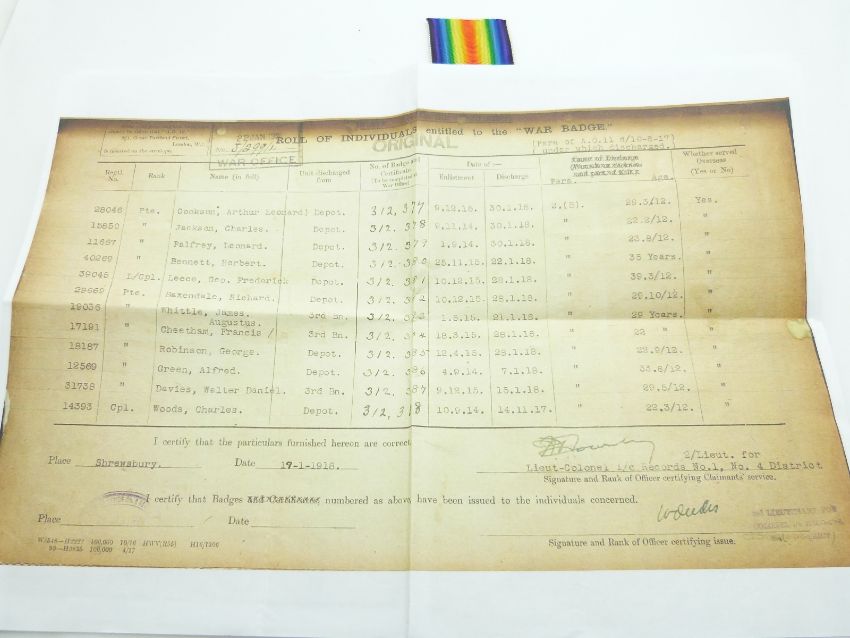 London, W.
22 JAN
No. J/2291/1
WAR OFFICE
ROLL OF INDIVIDUALS entitled to the "WAR BADGE."
ORIGINAL
(Para of A.O.11 d/10-8-17)
under which discharged.)
Regtl. No. Rank Name (in full) Unit discharged from No. of Badge and Certificate (To be completed at War Office) Date of — Enlistment Discharge Cause of Discharge Para. Age. Whether served Overseas (Yes or No)
28046 Pte. Cookson, Arthur Leonard Depot. 312,377 9.12.15. 30.1.18. 2.(B). 29.3/12. Yes.
15850 " Jackson, Charles. Depot. 312,378 9.11.14. 30.1.18. " 22.2/12. "
11667 " Palfrey, Leonard. Depot. 312,379 1.9.14. 30.1.18. " 23.8/12. "
40269 " Bennett, Herbert. Depot. 312,380 25.11.15. 22.1.18. " 35 Years. "
39045 L/Cpl. Leece, Geo. Frederick Depot. 312,381 10.12.15. 28.1.18. " 39.3/12. "
29669 Pte. Baxendale, Richard. Depot. 312,382 10.12.15. 28.1.18. " 29.10/12. "
19036 " Whittle, James. 3rd Bn. 312,383 1.5.15. 21.1.18. " 29 Years. "
Augustus.
17191 " Cheetham, Francis / 3rd Bn. 312,384 18.3.15. 28.1.18. " 22 " "
18187 " Robinson, George. Depot. 312,385 12.4.15. 28.1.18. " 22.9/12. "
12569 " Green, Alfred. Depot. 312,386 4.9.14. 7.1.18. " 33.8/12. "
31738 " Davies, Walter Daniel. 3rd Bn. 312,387 9.12.15. 15.1.18. " 29.5/12. "
14393 Cpl. Woods, Charles. Depot. 312,388 10.9.14. 14.11.17. " 22.3/12. "
I certify that the particulars furnished hereon are correct
Place Shrewsbury. Date 17-1-1918.
2/Lieut. for
Lieut-Colonel i/c Records No.1, No. 4 District
Signature and Rank of Officer certifying Claimants' service.
I certify that Badges numbered as above have been issued to the individuals concerned.
Place Date
2d LIEUTENANT FOR
COLONEL
Signature and Rank of Officer certifying issue.
100,000 10/16 HWV(R55) H16/1266
100,000 4/17